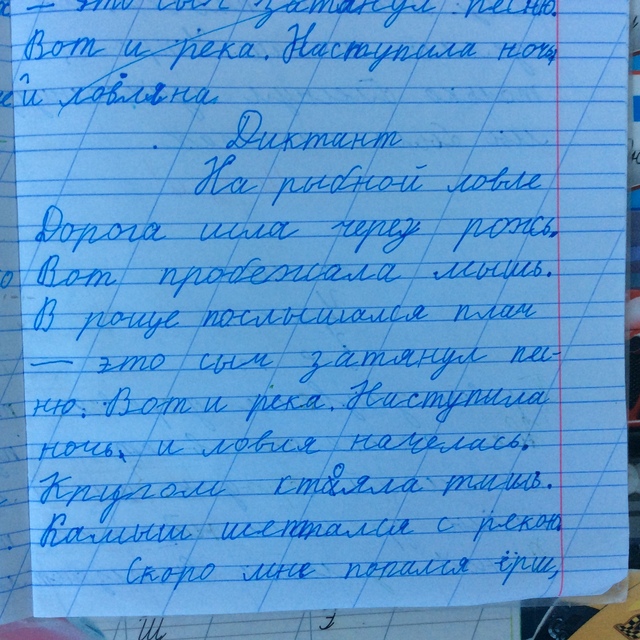 — это сыч затянул песню.
Вот и река. Наступила ночь,
ей ловляна.
Диктант
На рыбной ловле
Дорога шла через рожь.
Вот пробежала мышь.
В роще послышался плач
— это сыч затянул пес-
ню. Вот и река. Наступила
ночь, и ловля началась.
Кругом стояла тишь.
Камыш шептался с рекой.
Скоро мне попался ёрш,
Ш